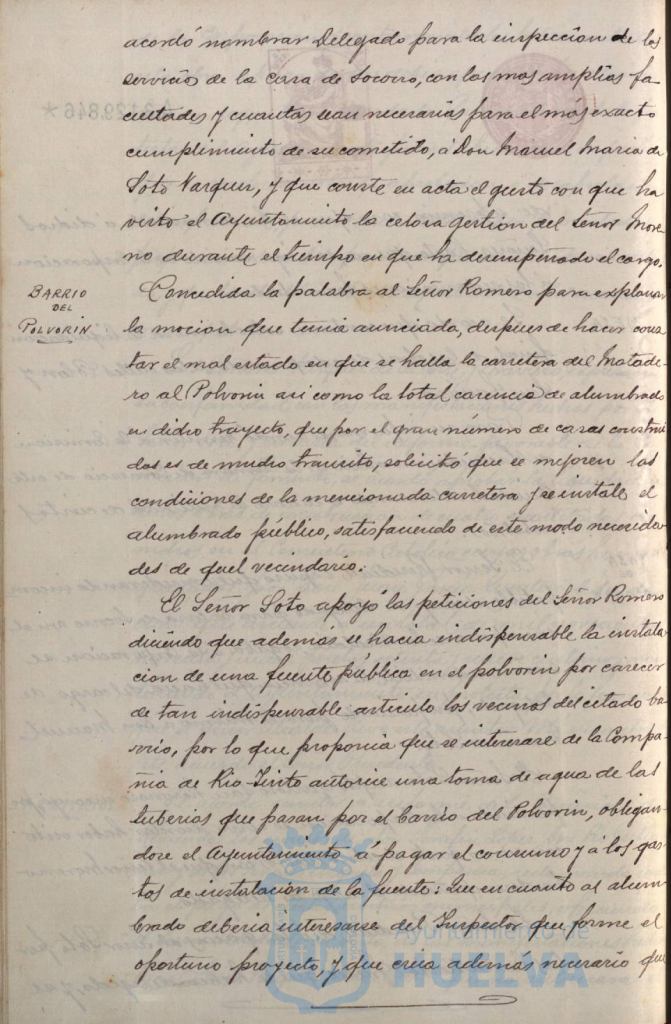 acordó nombrar Delegado para la inspeccion de los
servicios de la casa de Socorro, con las mas amplias fa
cultades y cuantas sean necesarias para el más exacto
cumplimiento de su cometido, á Don Manuel Maria de
Soto Vazquez, y que conste en acta el gusto con que ha
visto el Ayuntamiento la celosa gestion del Señor More
no durante el tiempo en que ha desempeñado el cargo.
BARRIO
DEL
POLVORIN
Concedida la palabra al Señor Romero para explanar
la mocion que tenia anunciada, despues de hacer cons
tar el mal estado en que se halla la carretera del Matade-
ro al Polvorin asi como la total carencia de alumbrado
en dicho trayecto, que por el gran número de casas construi
das es de mucho transito, solicitó que se mejoren las
condiciones de la mencionada carretera y se instale el
alumbrado público, satisfaciendo de este modo necesida-
des de quel vecindario.
El Señor Soto apoyó las peticiones del Señor Romero
diciendo que además se hacia indispensable la instala
cion de una fuente pública en el polvorin por carecer
de tan indispensable articulo los vecinos del citado ba
rrio, por lo que proponia que se interesase de la Compa
ñia de Rio-Tinto autorice una toma de agua de las
tuberias que pasan por el barrio del Polvorin, obligan
dose el Ayuntamiento á pagar el consumo y á los gas
tos de instalacion de la fuente: Que en cuanto al alum-
brado deberia interesarse del Inspector que forme el
oportuno proyecto, y que creia además necesario que
Ayuntamiento de
HUELVA